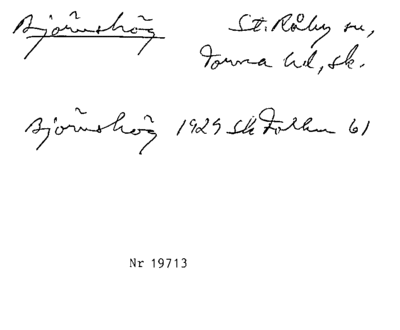 Björnshög St. Råby sn,
Torna hd, sk.
Björnshög 1929 Sk Folkm 61
Nr 19713